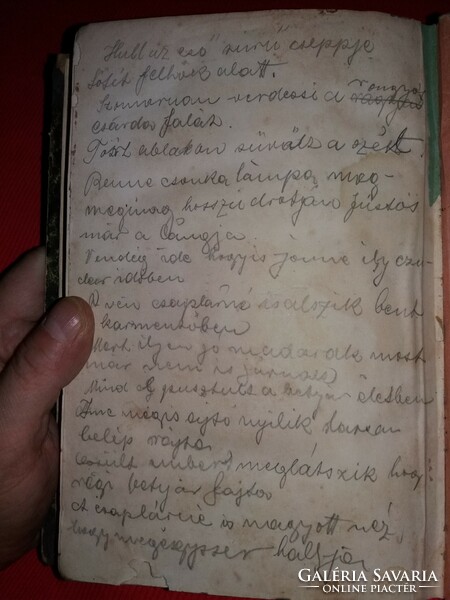 Hull az eső sűrű cseppje
Sötét felhők alatt.
Szomorúan verdesi a rongyos
csárdás falat.
Törött ablakán süvölt a szél
Benne csonka lámpa meg-
meginog hosszú drótján füstös
már a lángja
Vendég ide hogyis jönne ily
időben
A vén csaplárné bent
karmentőben
Mert ilyen jó madarak most
már nem is járnak
Mind elpusztult a betyár életben
Ime mégis ajtó nyilik
belép rajta
őszült ember meglátszik hogy
régi betyár fajta
A csaplárné is nagyott néz
hogy mégegyszer hallja
GALÉRIA SAVARIA
ONLINE PIACTÉR